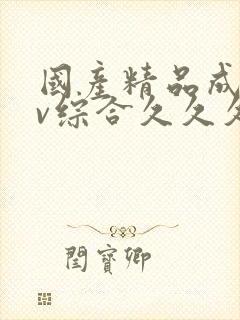 國產精品成
v综合久久久
閆寶卿